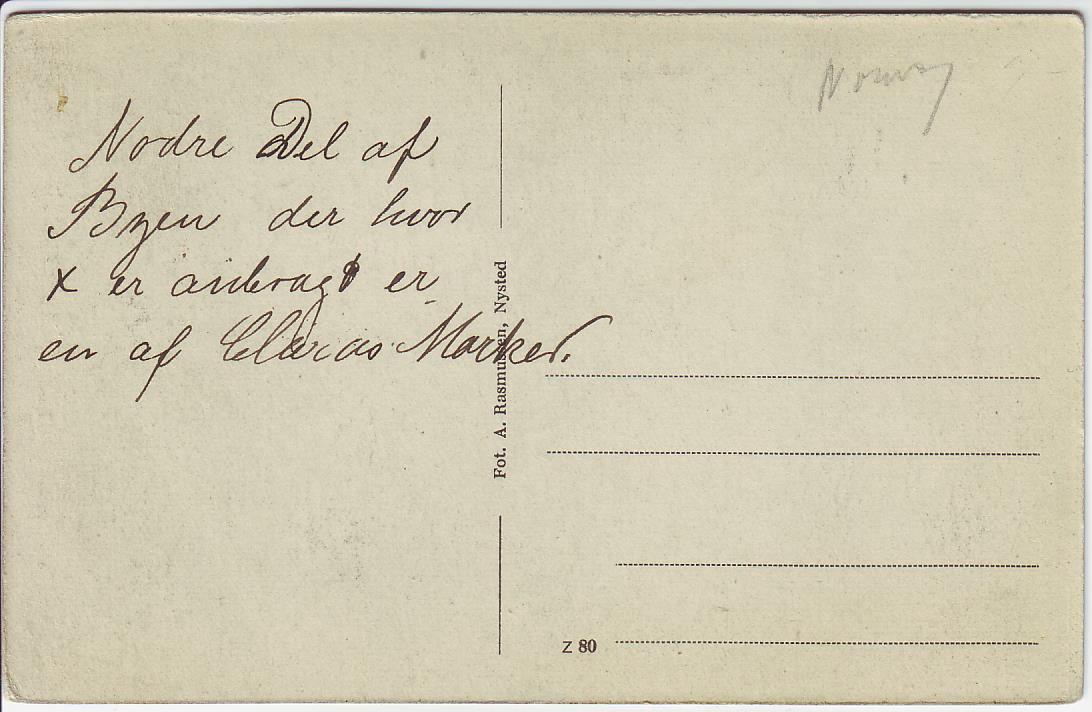 Nodre Del af
Byen der hvor
x er anbragt er
en af Claras Marker.
Fot. A. Rasmussen, Nysted
Norway
Z 80